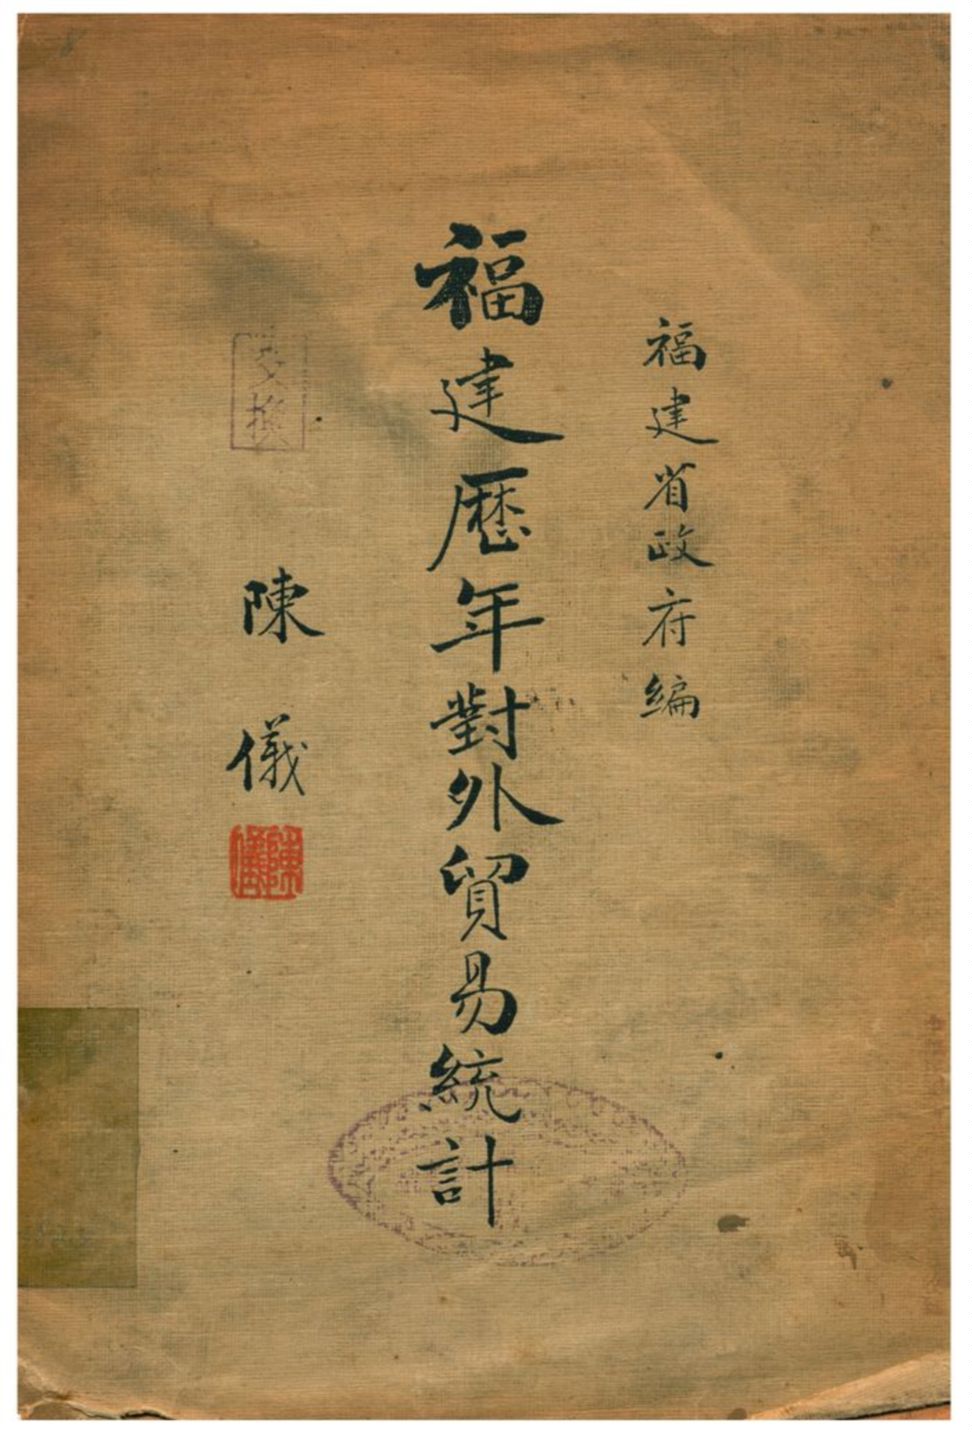 福建省政府編
福建歷年對外貿易統計
陳儀
交換